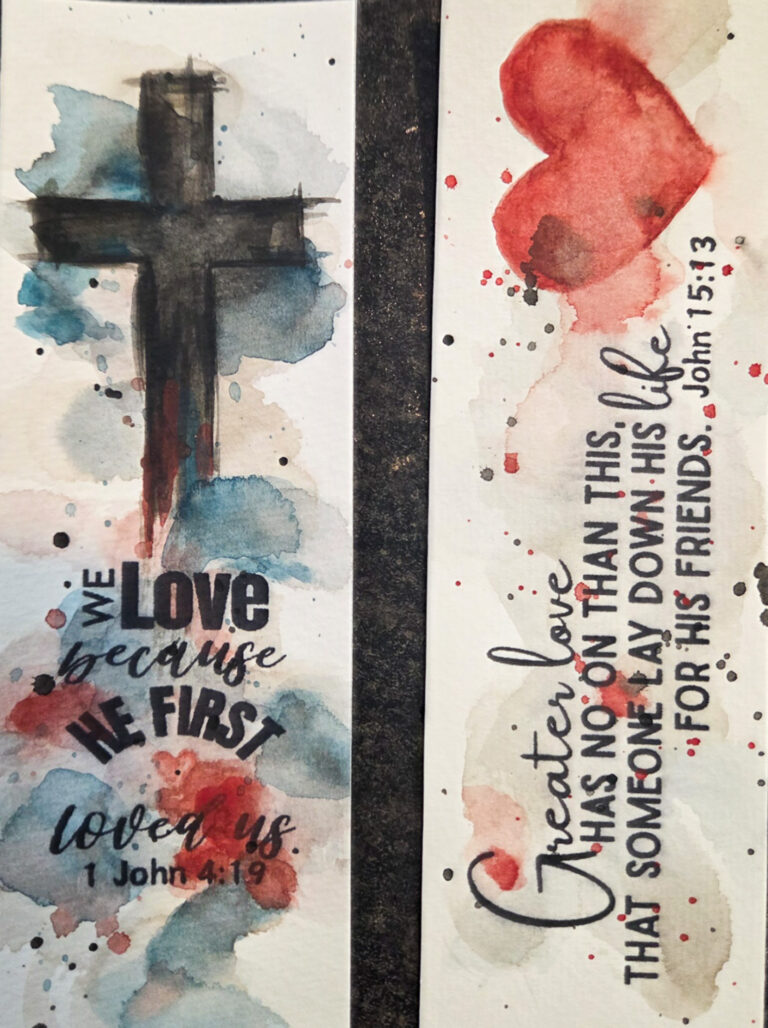 WE Love
because
HE FIRST
loved us
1 John 4:19
Greater love
HAS NO ON THAN THIS,
THAT SOMEONE LAY DOWN HIS life
FOR HIS FRIENDS. John 15:13